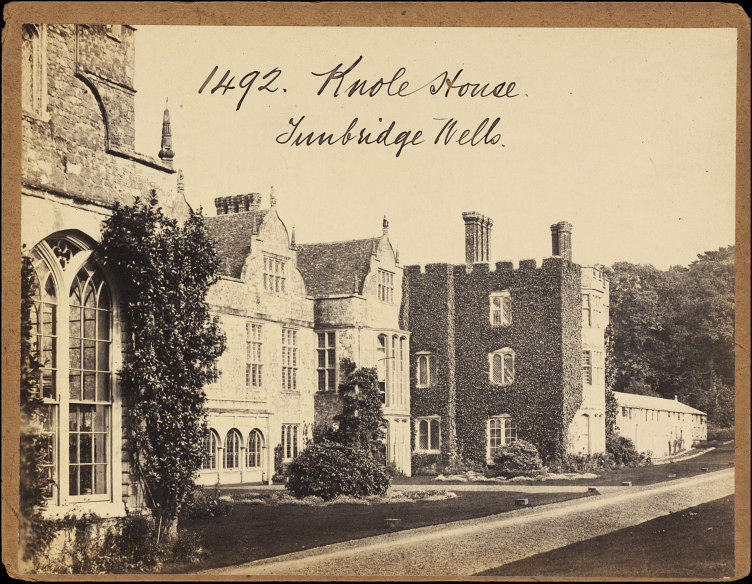 1492. Knole House.
Tunbridge Wells.